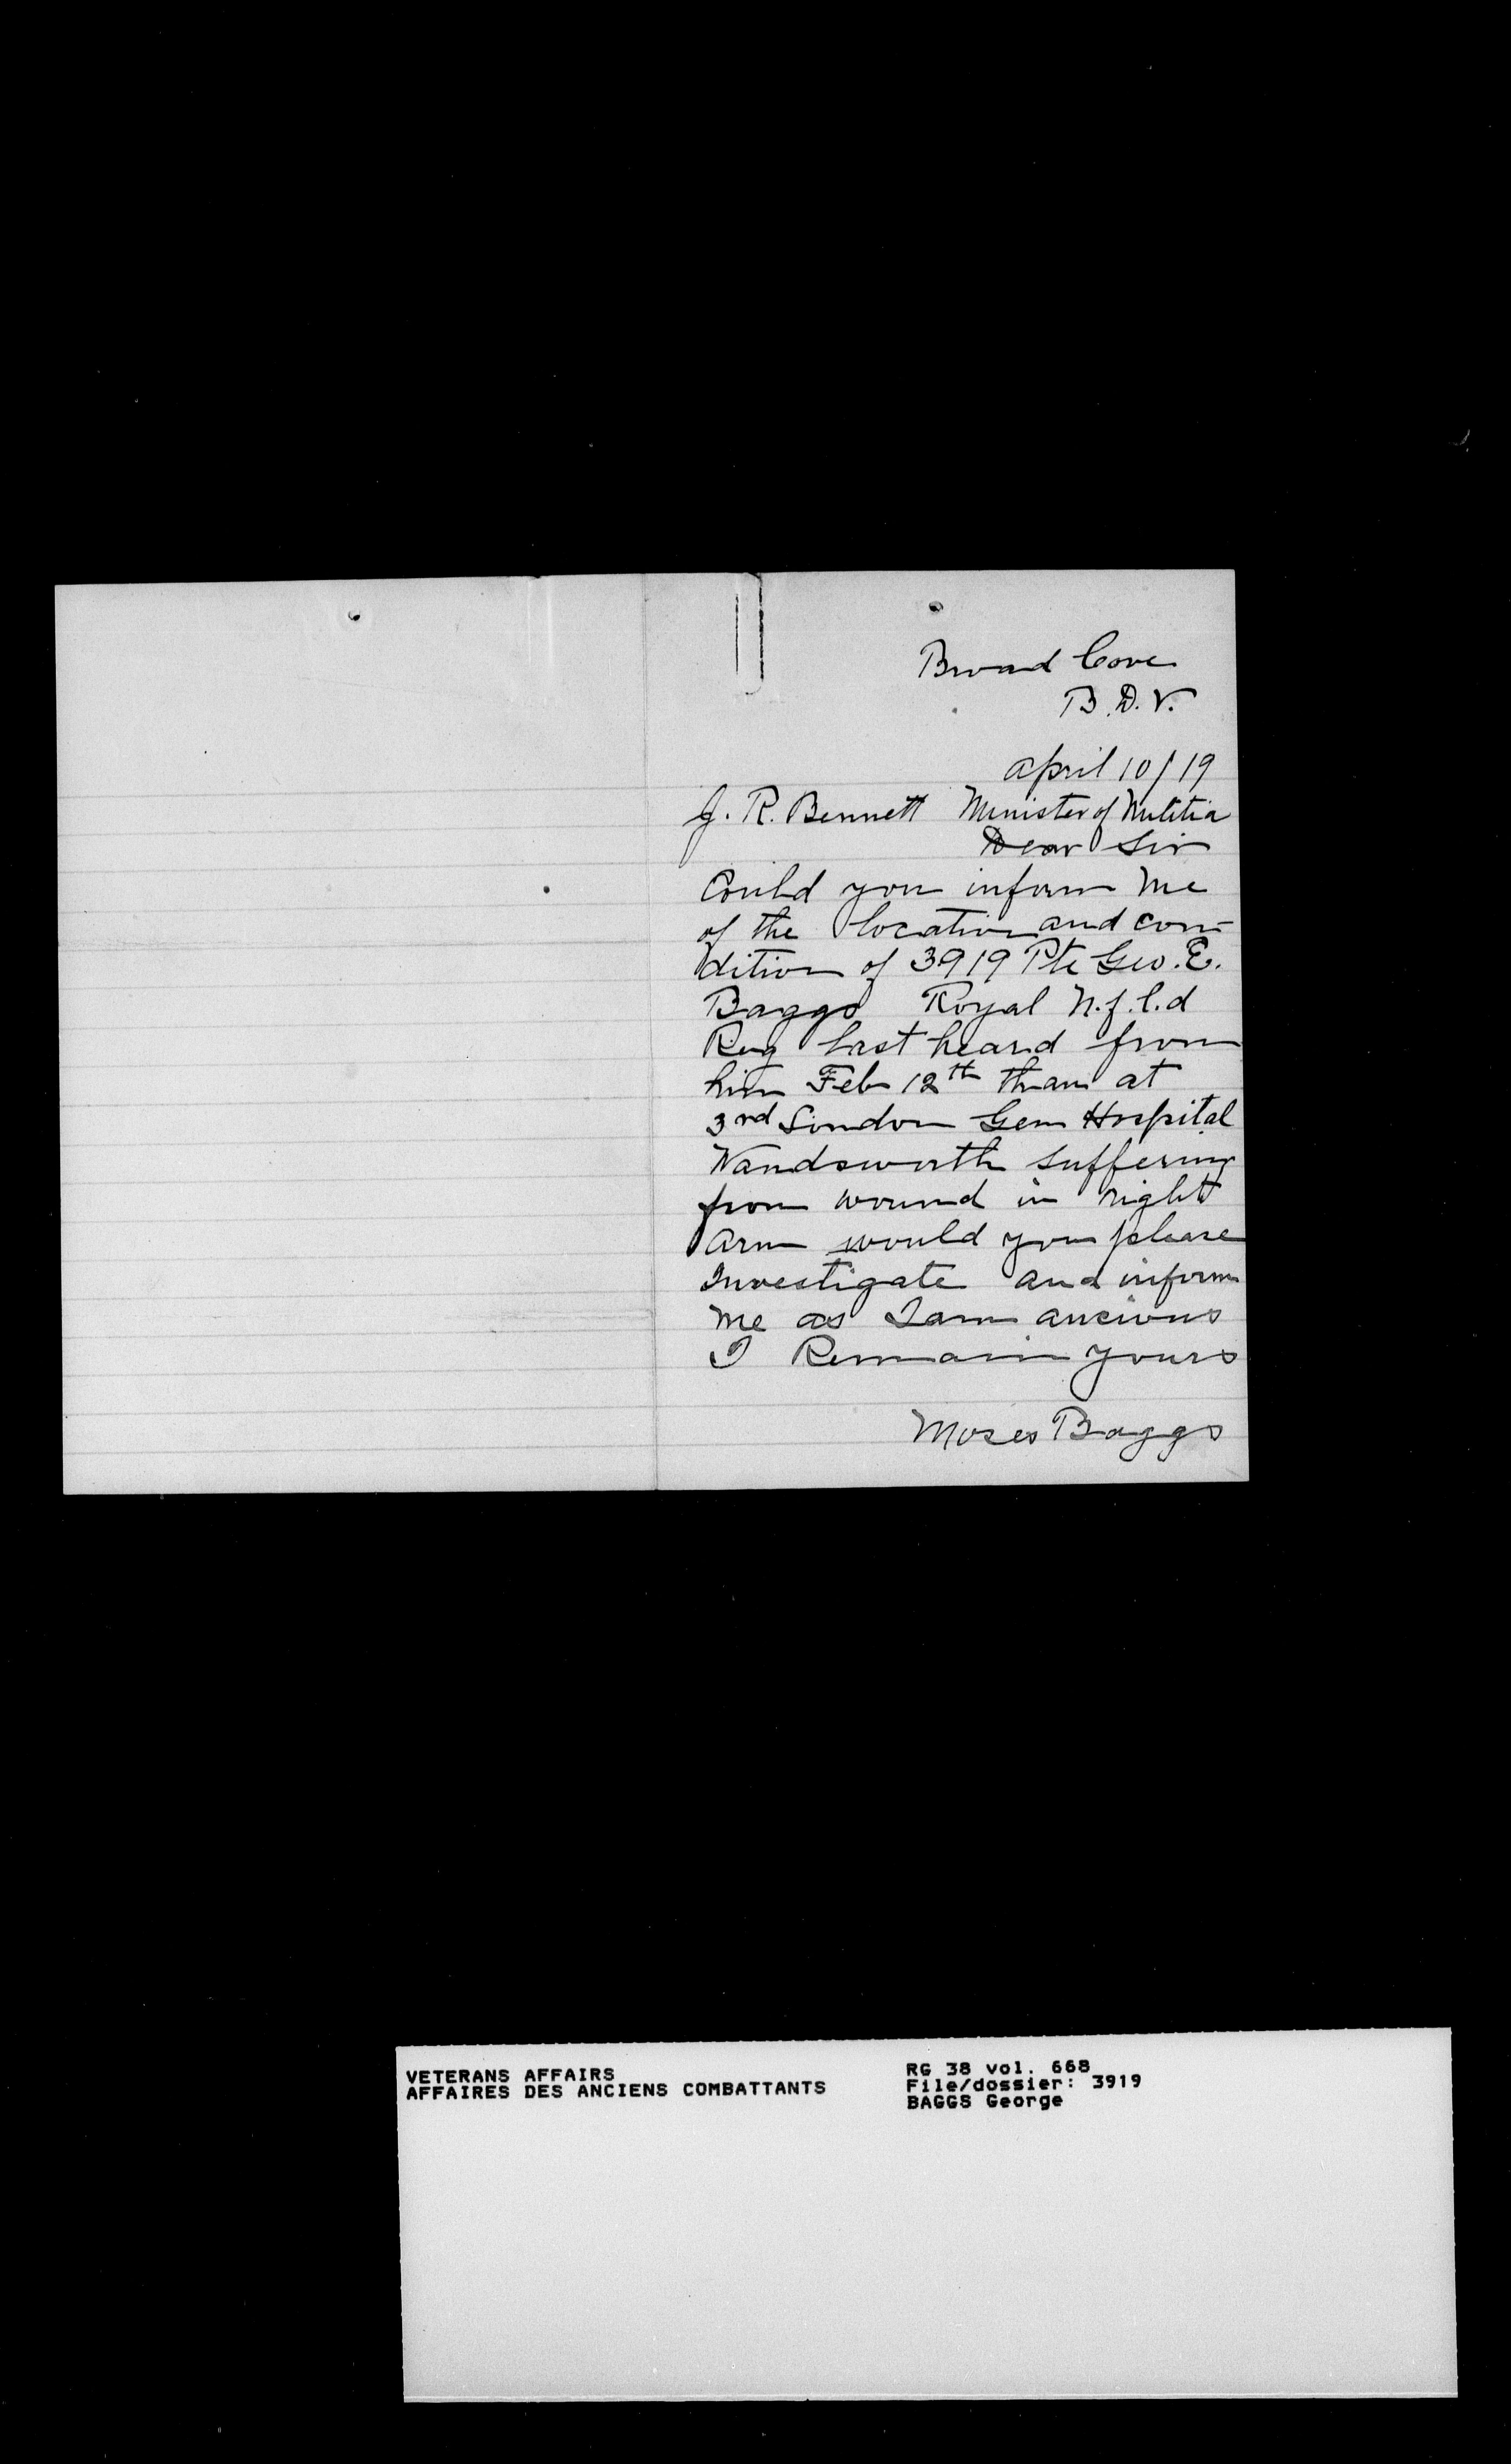 Broad Cove
B.D.V.
April 10/19
J. R. Bennett Minister of Militia
Dear Sir
Could you inform me
of the location and con-
dition of 3919 Pte Geo. E.
Baggs Royal N.f.l.d
Reg last heard from
him Feb 12th than at
3rd London Gen Hospital
Wandsworth suffering
from wound in right
Arm would you please
Investigate and inform
me as I am ancious
I Remain yours
Moses Baggs
VETERANS AFFAIRS
AFFAIRES DES ANCIENS COMBATTANTS
RG 38 vol. 668
File/dossier: 3919
BAGGS George